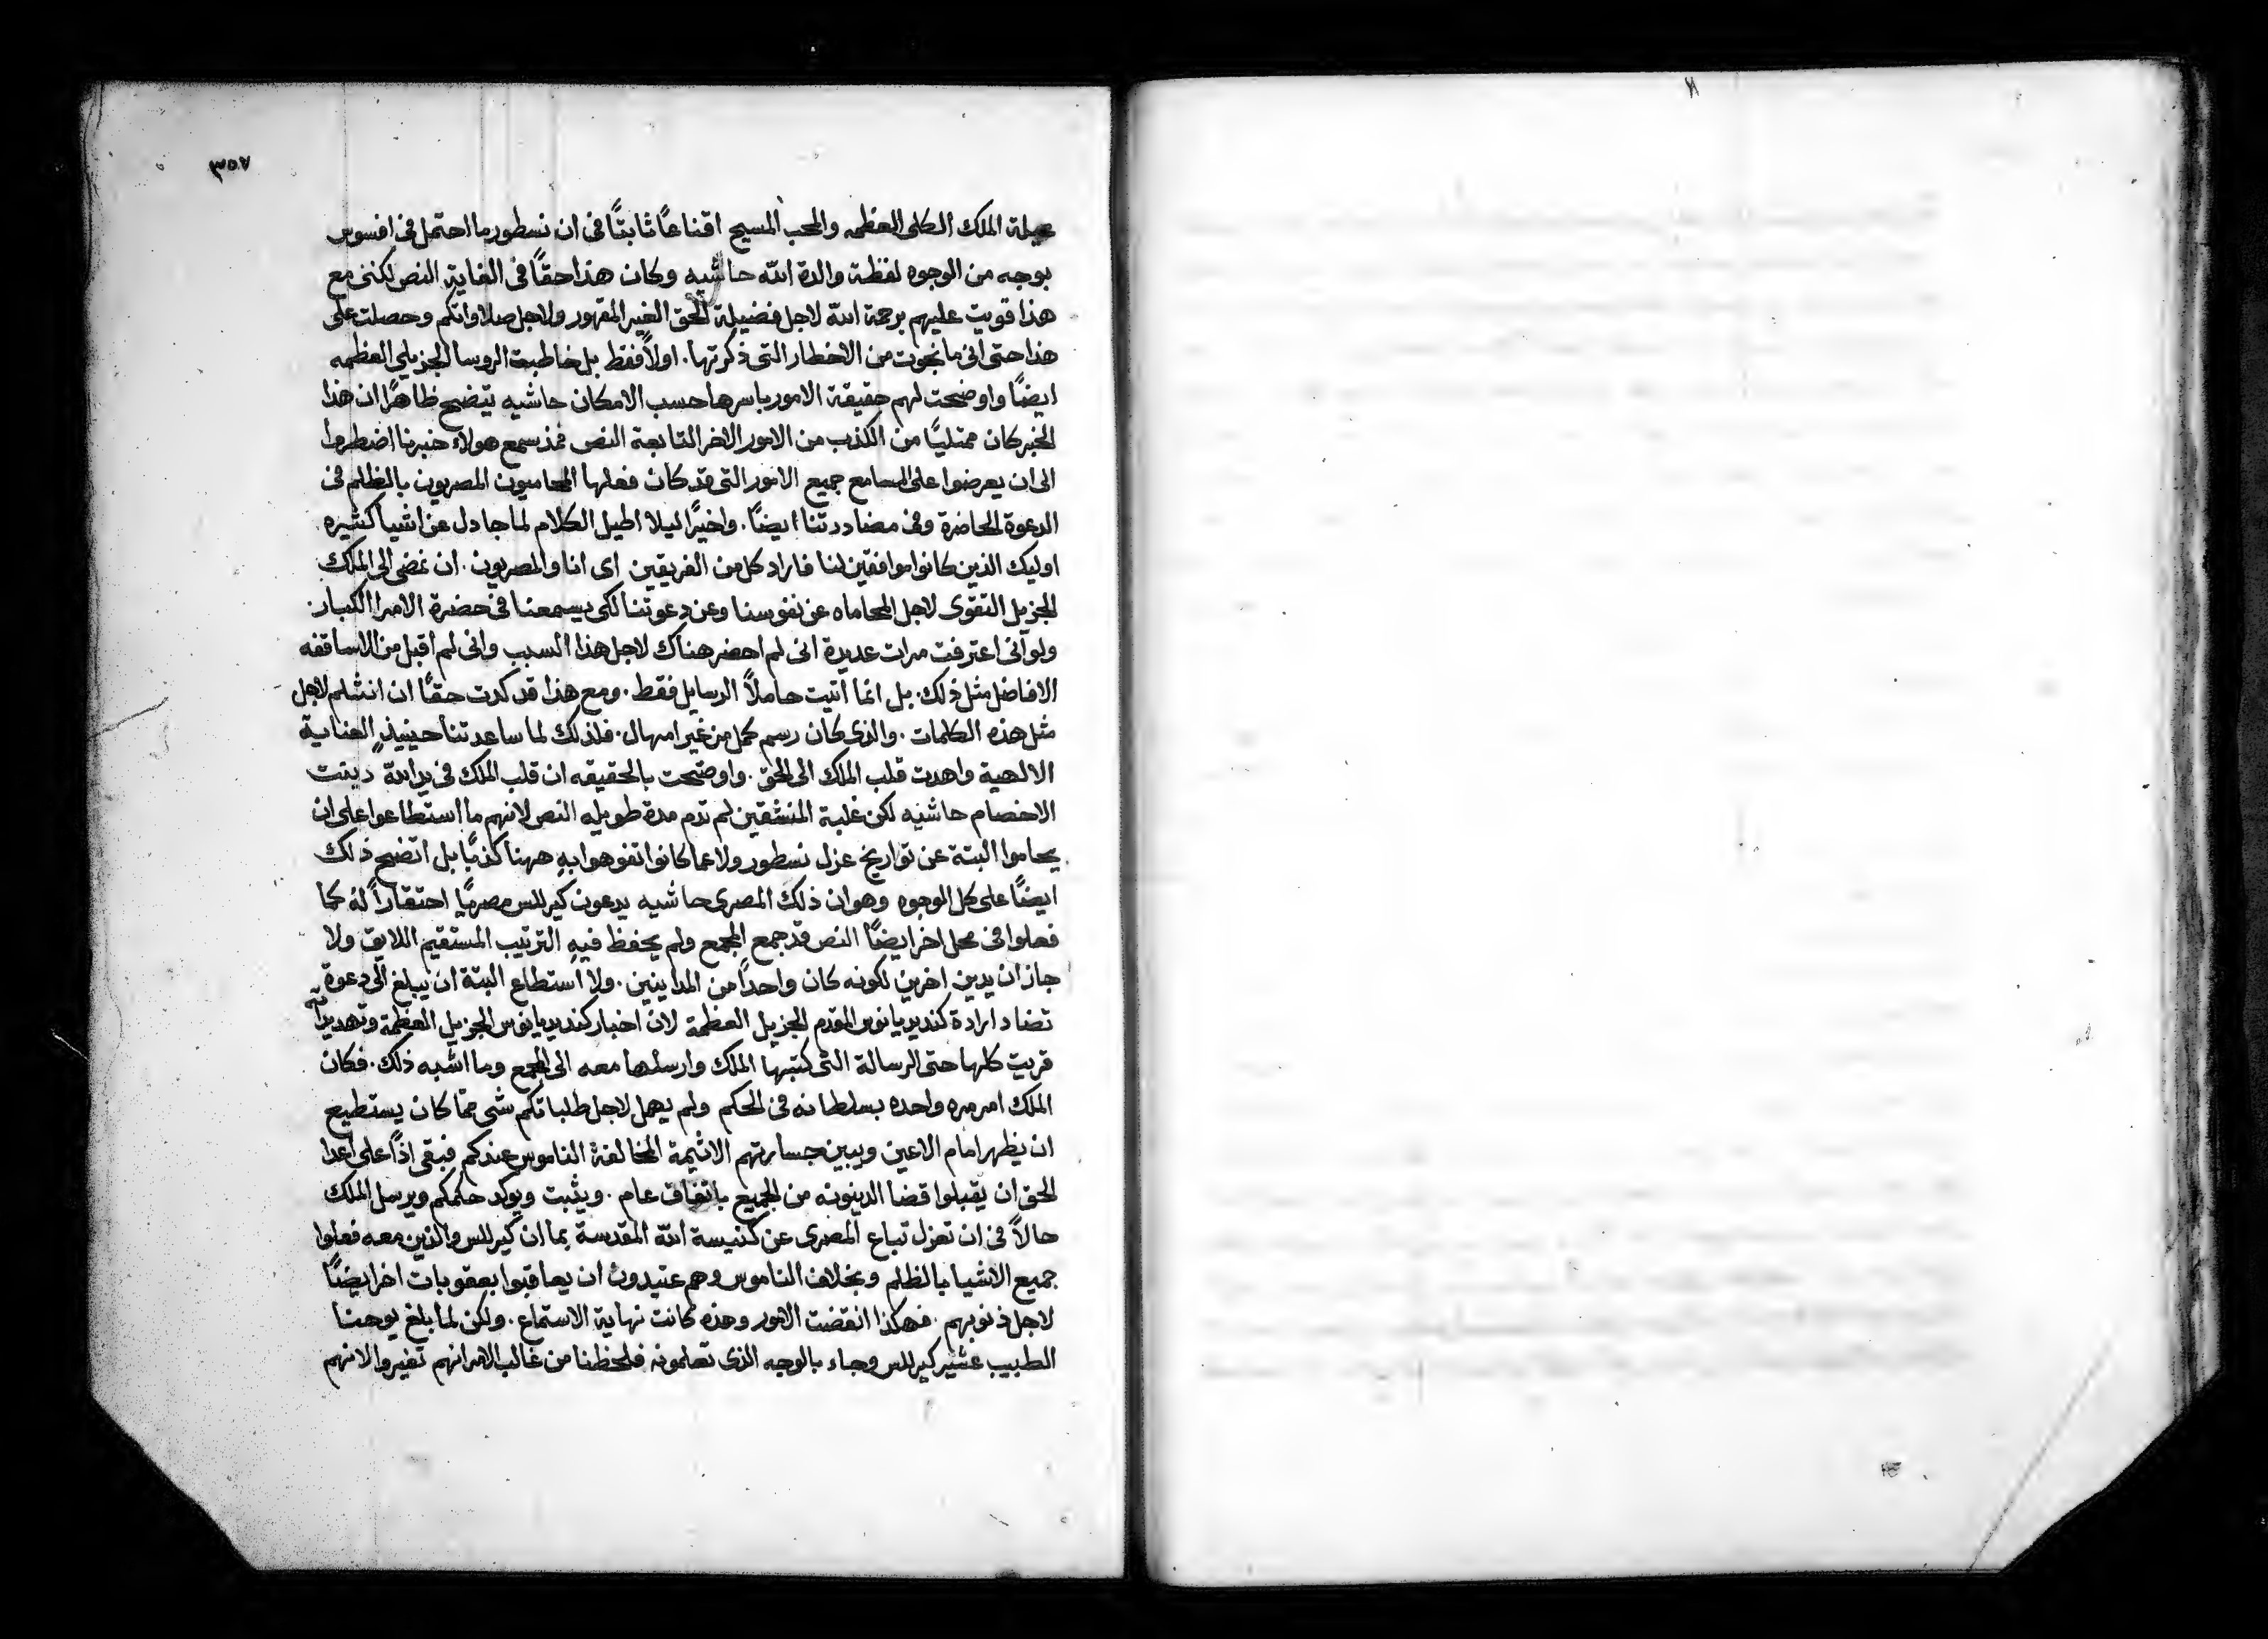 ٣٥٧
عيلة الملك الكلى العظمه والمحب المسيح اقناعًا ثابتًا فى ان نسطور ما احتمل فى افسوس
بوجه من الوجوه لفظة والدة الله حاشيه وكان هذا حقًا فى الغاية النص لكننى مع
هذا قويت عليهم برحمة الله لاجل فضيلة الحق الغير المقهور ولاجل صلاواتكم وحصلت على
هذا حتى انى ما نجوت من الاخطار التى ذكرتها. اولاً فقط بل خاطبت الروسا الجزيلى العظمه
ايضًا واوضحت لهم حقيقة الامور باسرها حسب الامكان حاشيه يتضح ظاهرًا ان هذا
الخبر كان ممتليًا من الكذب من الامور الاخر التابعة النص فمذ سمع هولاء خبرنا اضطروا
الى ان يعرضوا على المسامع جميع الامور التى قد كان فعلها المحاميون المصريون بالظلم فى
الدعوة الحاضرة وفى مضاددتنا ايضًا. واخيرًا ليلا اطيل الكلام لما جادل عن اشيا كثيره
اوليك الذين كانوا موافقين لنا فاراد كل من الفريقين اى انا والمصريون. ان نمضى الى الملك
الجزيل التقوى لاجل المحاماه عن نفوسنا وعن دعوتنا لكى يسمعنا فى حضرة الامرا الكبار.
ولو انى اعترفت مرات عديدة انى لم احضر هناك لاجل هذا السبب وانى لم اقبل من الاساقفه
الافاضل مثل ذلك. بل انما اتيت حاملاً الرسايل فقط. ومع هذا قد كدت حقًا ان انثلم لاجل
مثل هذه الكلمات. والذى كان رسم كمل من غير امهال. فلذلك لما ساعدتنا حينيذٍ العناية
الالهية واهدت قلب الملك الى الحق. واوضحت بالحقيقه ان قلب الملك فى يد الله دينت
الاخصام حاشيه لكن غلبة المنشقين لم تدم مدة طويله النص لانهم ما استطاعوا على ان
يحاموا البتة عن تواريخ عزل نسطور ولا عما كانوا تفوهوا به ههنا كذبًا بل اتضح ذلك
ايضًا على كل الوجوه وهو ان ذلك المصرى حاشيه يدعون كيرللس مصريًا احتقارًا له كما
فعلوا فى محل اخر ايضًا النص قد جمع المجمع ولم يحفظ فيه الترتيب المستقيم اللايق ولا
جاز ان يدين اخرين لكونه كان واحدًا من المداينين. ولا استطاع البتة ان يبلغ الى دعوة
تضاد ارادة كنديديانوس المقدم الجزيل العظمة لان اخبار كنديديانوس الجزيل العظمة وتهديداته
قريت كلها حتى الرسالة التى كتبها الملك وارسلها معه الى المجمع وما اشبه ذلك. فكان
الملك امر مره واحده بسلطانه فى الحكم ولم يهمل لاجل طلباتكم شى مما كان يستطيع
ان يظهر امام الاعين ويبين جسارتهم الاثيمة المخالفة الناموس عندكم فبقى اذًا على اعدا
الحق ان يقبلوا قضا الدينونه من الجميع باتفاق عام. ويثبت ويوكد حكمكم ويرسل الملك
حالاً فى ان تعزل تباع المصرى عن كنيسة الله المقدسة بما ان كيرللس والذين معه فعلوا
جميع الاشيا بالظلم وبخلاف الناموس وهم عتيدون ان يعاقبوا بعقوبات اخر ايضًا
لاجل ذنوبهم. فهكذا انقضت الامور وهذه كانت نهاية الاستماع. ولكن لما بلغ يوحنا
الطبيب عشير كيرللس وجاء بالوجه الذى تعلمونه فلحظنا من غالب الامرا انهم تغيروا لانهم